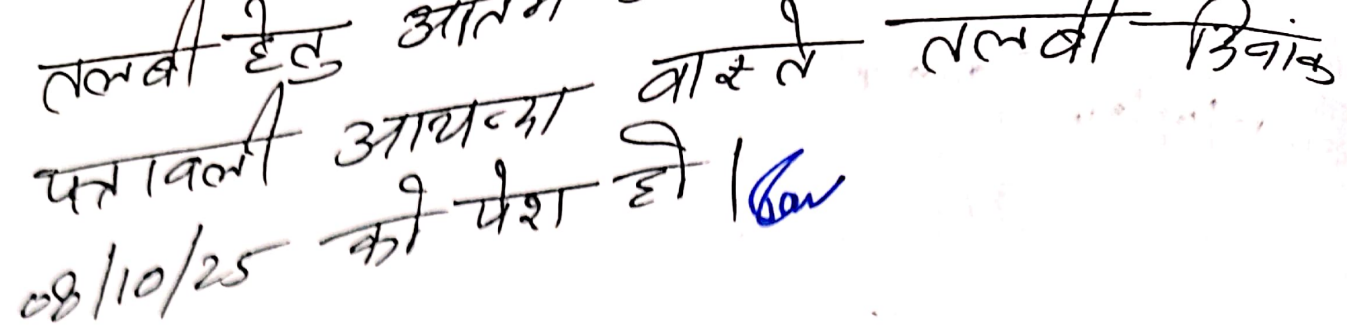 तलबी हेतु
पत्रावली आयन्दा वास्ते तलबी दिनांक
08/10/25 को पेश हो।